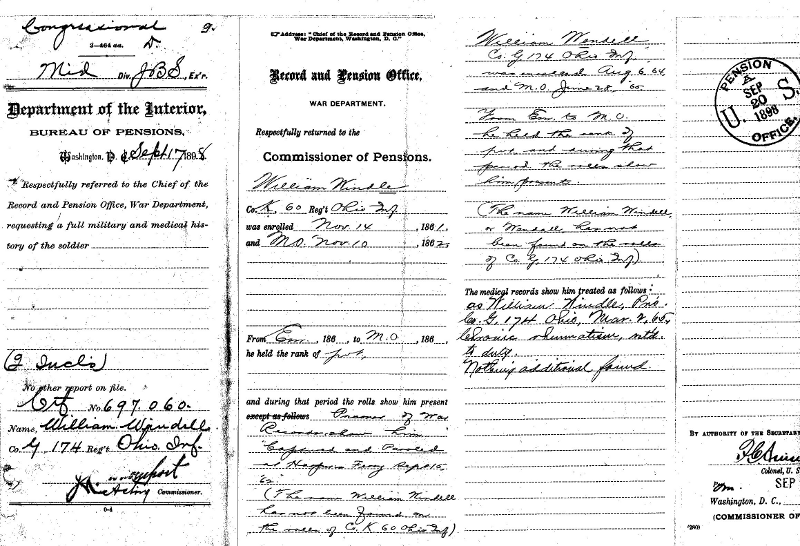 Congressional
3—464 aa.
Mid Div. J.B.S., Ex'r.
Department of the Interior,
BUREAU OF PENSIONS,
Washington, D. C., Sept 17, 1898.
Respectfully referred to the Chief of the
Record and Pension Office, War Department,
requesting a full military and medical his-
tory of the soldier
(2 Incls)
No other report on file.
Ctf No. 697.060.
Name, William Windell
Co. G, 174 Reg't Ohio Inf.
Acting Commissioner.
6-4
Address: "Chief of the Record and Pension Office,
War Department, Washington, D. C."
Record and Pension Office,
WAR DEPARTMENT.
Respectfully returned to the
Commissioner of Pensions.
William Windle
Co. K, 60 Reg't Ohio Inf
was enrolled Nov. 14, 1861,
and M.O. Nov. 10, 1862.
From Em., 186 , to M.O., 186
he held the rank of pvt,
and during that period the rolls show him present
except as follows Prisoner of War
Records show him
Captured and Paroled
at Harpers Ferry Sept 15,
62.
(The name William Windell
has not been found on
the rolls of Co. K 60 Ohio Inf)
William Wendell
Co. G 174 Ohio Inf
was enrolled Aug. 6, 64,
and M.O. June 28, 65.
From Em. to M.O.
he held the rank of
pvt and during that
period the rolls show
him present.
(The name William Windell
or Wendall has not
been found on the rolls
of Co. G, 174 Ohio Inf)
The medical records show him treated as follows:
as William Windle, Pvt.
Co. G, 174 Ohio, Mar. 2, 65,
Chronic rheumatism, retd.
to duty.
Nothing additional found.
PENSION
SEP
20
1898
U. S.
OFFICE.
BY AUTHORITY OF THE SECRETARY
Colonel, U. S.
SEP
Washington, D. C.,
(COMMISSIONER OF